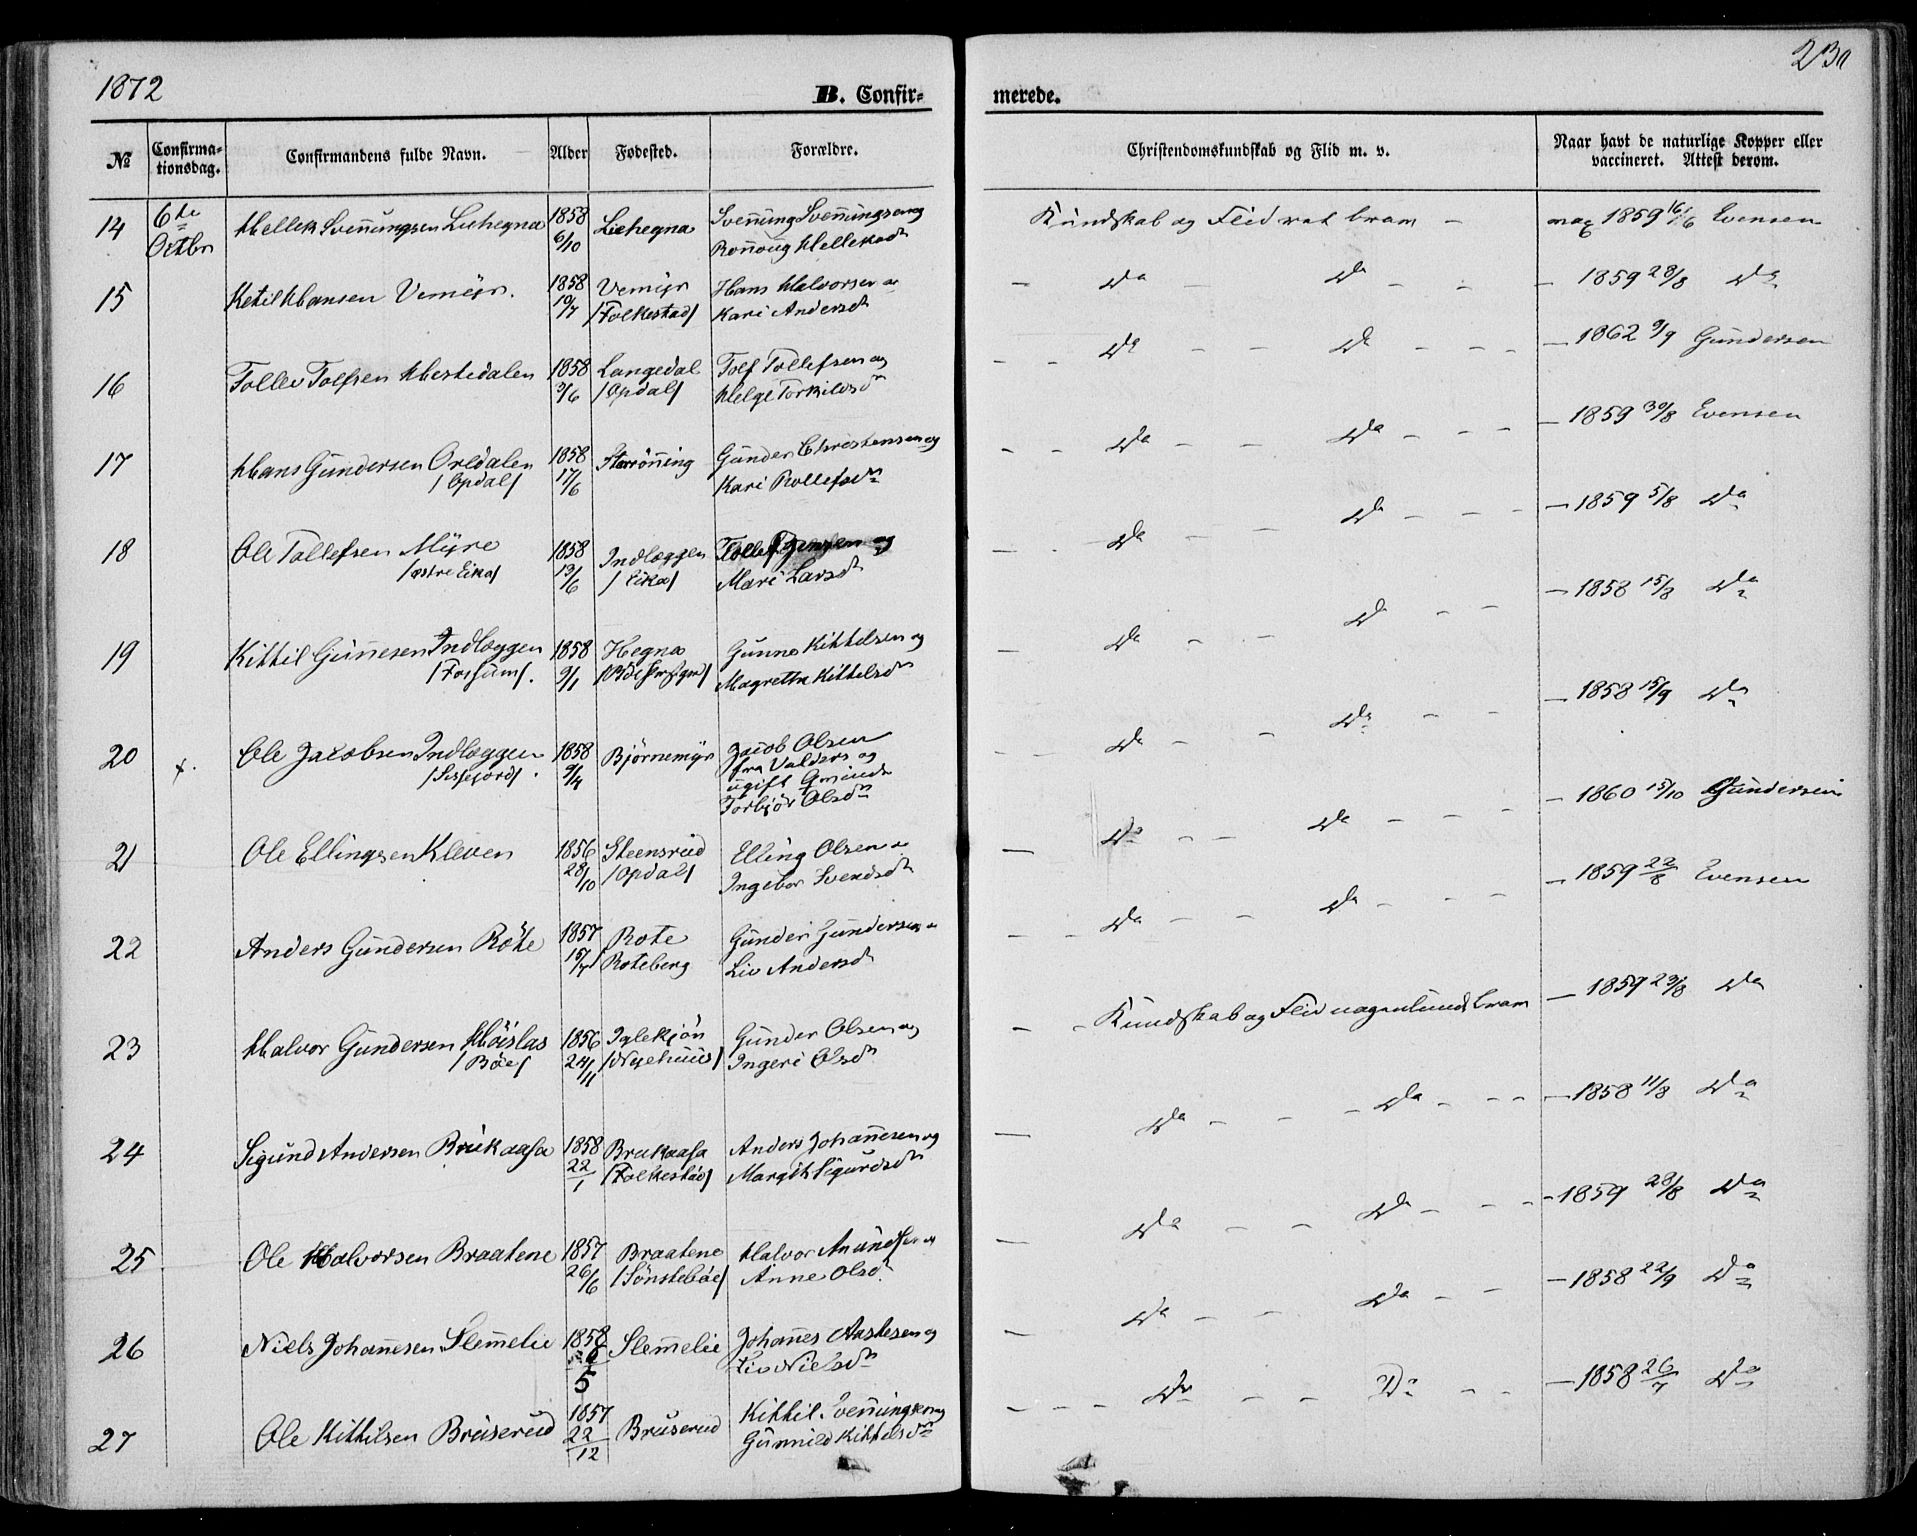 1872
B. Confirmerede.
230
No Confirmationsdag. Confirmandens fulde Navn. Alder Fødested. Forældre. Christendomskundskab og Flid m. v. Naar havt de naturlige Kopper eller vaccineret. Attest derom.
14 6te Octbr Hellek Svenningsen Liehegna 1858 6/10 Liehegna Svenning Svenningsen og Ronnoug Helleksdt Kundskab og Flid 1859 16/6 Evensen
15 Ketil Hansen Vemyr. 1858 10/7 Vemyr /Folkestad/ Hans Halvorsen o Kari Andersdt Do Do 1859 28/8 Do
16 Tollev Tolfsen Hestedalen 1858 3/6 Langedal /Opdal/ Tolf Tollefsen og Helge Torkildsdt Do Do 1862 9/9 Gundersen
17 Hans Gundersen Oredalen /Opdal/ 1858 17/6 Gunder Christensen og Kari Rollefsdtr Do Do 1859 30/8 Evensen
18 Ole Tallefsen Myre /østre Eika/ 1858 13/6 Indlæggen /Eika/ Mari Larsdt Do Do 1859 5/8 Do
19 Kittil Gunnesen Indlæggen /Forsum/. 1858 9/1 Hegna Gunne Kittelsen og Magretha Kittelsdt Do Do 1858 15/8 Do
20 Ole Jacobsen Indlæggen 1858 9/4 Bjørnemyr Jacob Olsen fra Valders og ugift Torbjør Olsdtr Do Do 1858 15/9 Do
21 Ole Ellingsen Kleven 1856 28/10 Steensrud /Opdal/ Elling Olsen o Ingebor Svendsdt Do Do 1860 15/10 Gundersen
22 Anders Gundersen Röte 1857 15/7 Rote Roteberg Gunder Gundersen o Liv Andersdt Do Do 1859 22/8 Evensen
23 Halvor Gundersen Höislas /Böe/ 1856 24/11 Iglekjön /Nyehuus/ Gunder Olsen og Ingeri Olsdt Kundskab og Flid 1859 23/8 Do
24 Sigund Andersen Brukaasa 1858 22/1 Brukaasa /Folkestad/ Anders Johannesen og Margit Sigurdsdt Do Do 1858 11/8 Do
25 Ole Halvorsen Braatene 1857 26/6 Braatene /Sönsteböe/ Halvor Amundsen og Anne Olsdt Do Do 1859 28/8 Do
26 Niels Johannesen Slemmelie 1858 5 Slemmelie Johannes Aastesen og Liv Nielsdtr Do Do 1858 22/9 Do
27 Ole Kittilsen Bruserud 1857 22/12 Bruserud Kittil Svenningsen og Gunnild Kittelsdtr Do Do 1858 26/7 Do